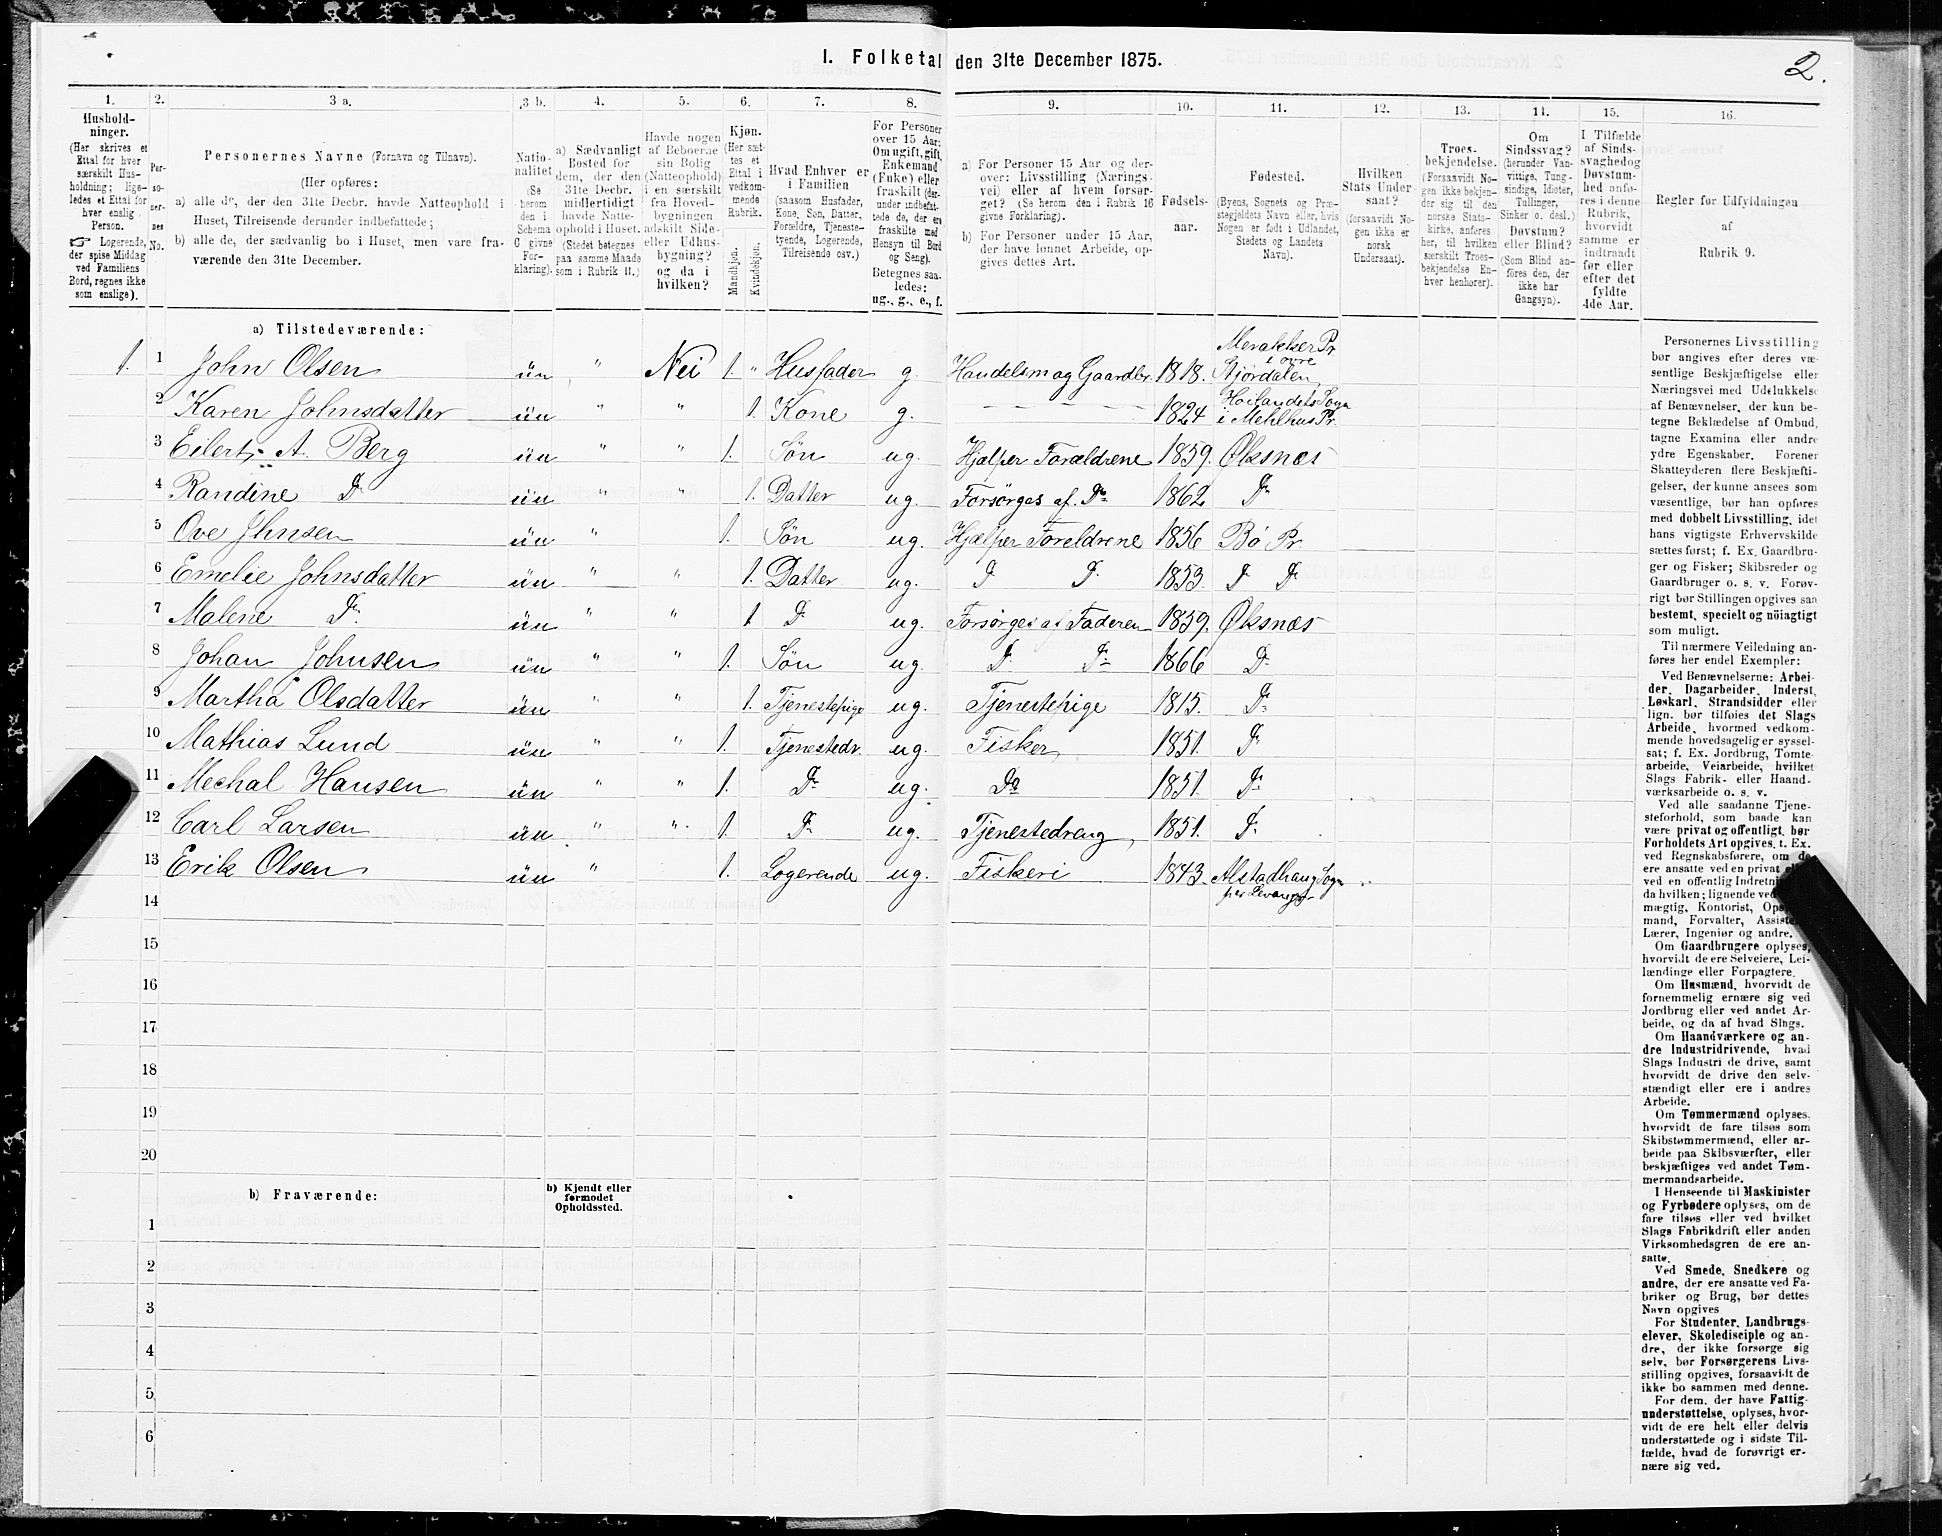 I. Folketal den 31te December 1875.
2.
1. 2. 3 a. 3 b. 4. 5. 6. 7. 8. 9. 10. 11. 12. 13. 14. 15. 16.
Hushold-
ninger.
(Her skrives et
Ettal for hver
særskilt Hus-
holdning; lige-
ledes et Ettal for
hver enslig
Person.
☞ Logerende,
der spise Middag
ved Familiens
Bord, regnes ikke
som enslige).
Per-
so-
ner-
nes
No.
Personernes Navne (Fornavn og Tilnavn).
(Her opføres:
a) alle de, der den 31te Decbr. havde Natteophold i
Huset, Tilreisende derunder indbefattede;
b) alle de, der sædvanlig bo i Huset, men vare fra-
værende den 31te December.
Natio-
nalitet
(Se
herom
den i
Schema
C givne
For-
klaring).
a) Sædvanligt
Bosted for
dem, der den
31te Decbr.
midlertidigt
havde Natte-
ophold i Huset.
(Stedet betegnes
paa samme Maade
som i Rubrik 11.)
Havde nogen
af Beboerne
sin Bolig
(Natteophold)
i en særskilt
fra Hoved-
bygningen
adskilt Side-
eller Udhus-
bygning?
og da i
hvilken?
Kjøn.
(Her sæt-
tes et
Ettal i
vedkom-
mende
Rubrik.
Mandkjøn.
Kvindekjøn.
Hvad Enhver er
i Familien
(saasom Husfader,
Kone, Søn, Datter,
Forældre, Tjeneste-
tyende, Logerende,
Tilreisende osv.)
For Personer
over 15 Aar:
Om ugift, gift,
Enkemand
(Enke) eller
fraskilt (der-
under indbefat-
tede de, der ere
fraskilte med
Hensyn til Bord
og Seng).
Betegnes saa-
ledes:
ug., g., e., f.
a) For Personer 15 Aar og der-
over: Livsstilling (Nærings-
vei) eller af hvem forsør-
get? (Se herom den i Rubrik 16
givne Forklaring).
b) For Personer under 15 Aar,
der have lønnet Arbeide, op-
gives dettes Art.
Fødsels-
aar.
Fødested.
(Byens, Sognets og Præ-
stegjeldets Navn eller, hvis
Nogen er født i Udlandet,
Stedets og Landets
Navn).
Hvilken
Stats Under-
saat?
(forsaavidt No-
gen ikke er
norsk
Undersaat).
Troes-
bekjendelse.
(Forsaavidt No-
gen ikke bekjen-
der sig til den
norske Stats-
kirke, anføres
her, til hvilken
særskilt Troes-
bekjendelse En-
hver henhører).
Om
Sindssvag?
(herunder Van-
vittige, Tung-
sindige, Idioter,
Tullinger,
Sinker o. desl.)
Døvstum?
eller Blind?
(Som Blind an-
føres den, der
ikke har
Gangsyn).
I Tilfælde
af Sinds-
svaghed og
Døvstum-
hed anfø-
res i denne
Rubrik,
hvorvidt
samme er
indtraadt
før eller
efter det
fyldte
4de Aar.
Regler for Udfyldningen
af
Rubrik 9.
a) Tilstedeværende:
1. 1 John Olsen ün " Nei 1. " Husfader g. Handelsm og Gaardbr. 1818. Merakker Pr. i øvre Stjørdalen
2 Karen Johnsdatter ün " " 1. Kone g. - - - - 1824 Høilandets Sogn i Mehlhus Pr.
3 Eilert A. Berg ün " " 1. Søn ug. Hjælper Forældrene 1859. Øksnæs
4 Randine Do ün " " 1. Datter ug. Forsørges af Do 1862 Do
5 Ove Jhnsen ün " 1. Søn ug. Hjælper Foreldrene 1856 Bø Pr.
6 Emelie Johnsdatter ün " " 1. Datter ug. Do Do 1853. Do Do
7 Malene Do ün " " 1 Do ug. Forsørges af Faderen 1859. Øksnæs
8 Johan Johnsen ün " " 1. Søn ug. Do Do 1866 Do
9 Martha Olsdatter ün " " 1. Tjenestepige ug. Tjenestepige 1815. Do
10 Mathias Lund ün " " 1. Tjenestedr. ug. Fisker 1851. Do
11 Mechal Hansen ün " " 1. Do ug. Do 1851. Do
12 Carl Larsen ün " " 1. Do ug. Tjenestedreng 1851. Do
13 Erik Olsen ün " 1. Logerende ug. Fiskeri 1843. Alstadhaug Sogn
14
15
16
17
18
19
20
b) Fraværende:
b) Kjendt eller
formodet
Opholdssted.
1
2
3
4
5
6
Personernes Livsstilling
bør angives efter deres væ-
sentlige Beskjæftigelse eller
Næringsvei med Udelukkelse
af Benævnelser, der kun be-
tegne Beklædelse af Ombud,
tagne Examina eller andre
ydre Egenskaber. Forener
Skatteyderen flere Beskjæfti-
gelser, der kunne ansees som
væsentlige, bør han opføres
med dobbelt Livsstilling, idet
hans vigtigste Erhvervskilde
sættes først; f. Ex. Gaardbru-
ger og Fisker; Skibsreder og
Gaardbruger o. s. v. Forøv-
rigt bør Stillingen opgives saa
bestemt, specielt og nöiagtigt
som muligt.
Til nærmere Veiledning an-
føres her endel Exempler:
Ved Benævnelserne: Arbei-
der, Dagarbeider, Inderst,
Løskarl, Strandsidder eller
lign. bør tilføies det Slags
Arbeide, hvormed vedkom-
mende hovedsagelig er syssel-
sat; f. Ex. Jordbrug, Tomte-
arbeide, Veiarbeide, hvilket
Slags Fabrik- eller Haand-
værksarbeide o. s. v.
Ved alle saadanne Tjene-
steforhold, som baade kan
være privat og offentligt, bør
Forholdets Art opgives, t. Ex.
ved Regnskabsførere, om de
ere ansatte ved en privat
ved en offentlig
da hvilken; lignende ved
mægtig, Kontorist,
mand, Forvalter,
Lærer, Ingeniør og andre.
Om Gaardbrugere oplyses,
hvorvidt de ere Selveiere, Lei-
lændinge eller Forpagtere.
Om Husmænd, hvorvidt de
fornemmelig ernære sig ved
Jordbrug eller ved andet Ar-
beide, og da af hvad Slags.
Om Haandværkere og an-
dre Industridrivende, hvad
Slags Industri de drive, samt
hvorvidt de drive den selv-
stændigt eller ere i andres
Arbeide.
Om Tømmermænd oplyses,
hvorvidt de fare tilsøs som
Skibstømmermænd, eller ar-
beide paa Skibsværfter, eller
beskjæftiges ved andet Tøm-
mermandsarbeide.
I Henseende til Maskinister
og Fyrbødere oplyses, om de
fare tilsøs eller ved hvilket
Slags Fabrikdrift eller anden
Virksomhedsgren de ere an-
satte.
Ved Smede, Snedkere og
andre, der ere ansatte ved Fa-
briker og Brug, bør dettes
Navn opgives
For Studenter, Landbrugs-
elever, Skoledisciple og an-
dre, der ikke forsørge sig
selv, bør Forsørgerens Livs-
stilling opgives, forsaavidt de
ikke bo sammen med denne.
For dem, der have Fattig-
understøttelse, oplyses, hvor-
vidt de ere helt eller delvis
understøttede og i sidste Til-
fælde, hvad de forøvrigt er-
nære sig ved.